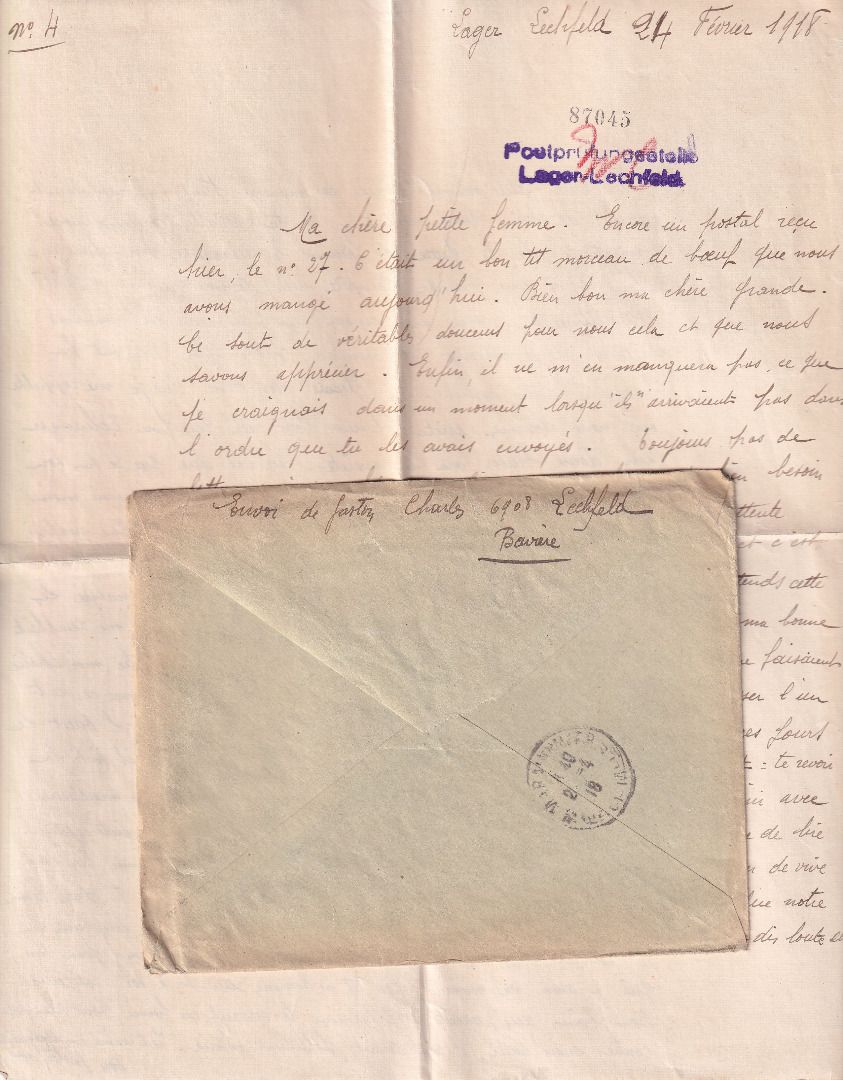 nº 4
Lager Lechfeld 24 Février 1918
87045
Postprüfungsstelle
Lager-Lechfeld
Ma chère petite femme. Encore un postal reçu
hier, le nº 27. C'était un bon tit morceau de bœuf que nous
avons mangé aujourd'hui. Bien bon ma chère grande.
Ce sont de véritables douceurs pour nous cela et que nous
savons apprécier. Enfin, il ne m'en manquera pas, ce que
je craignais dans un moment lorsqu'"ils" arrivaient pas dans
l'ordre que tu les avais envoyés. Toujours pas de
besoin
attente
et c'est
tends cette
ma bonne
faisaient
ser l'un
ces jours
te revoir
avec
de lire
de vive
que notre
dis toute
Envoi de Gaston Charles 6908 Lechfeld
Bavière